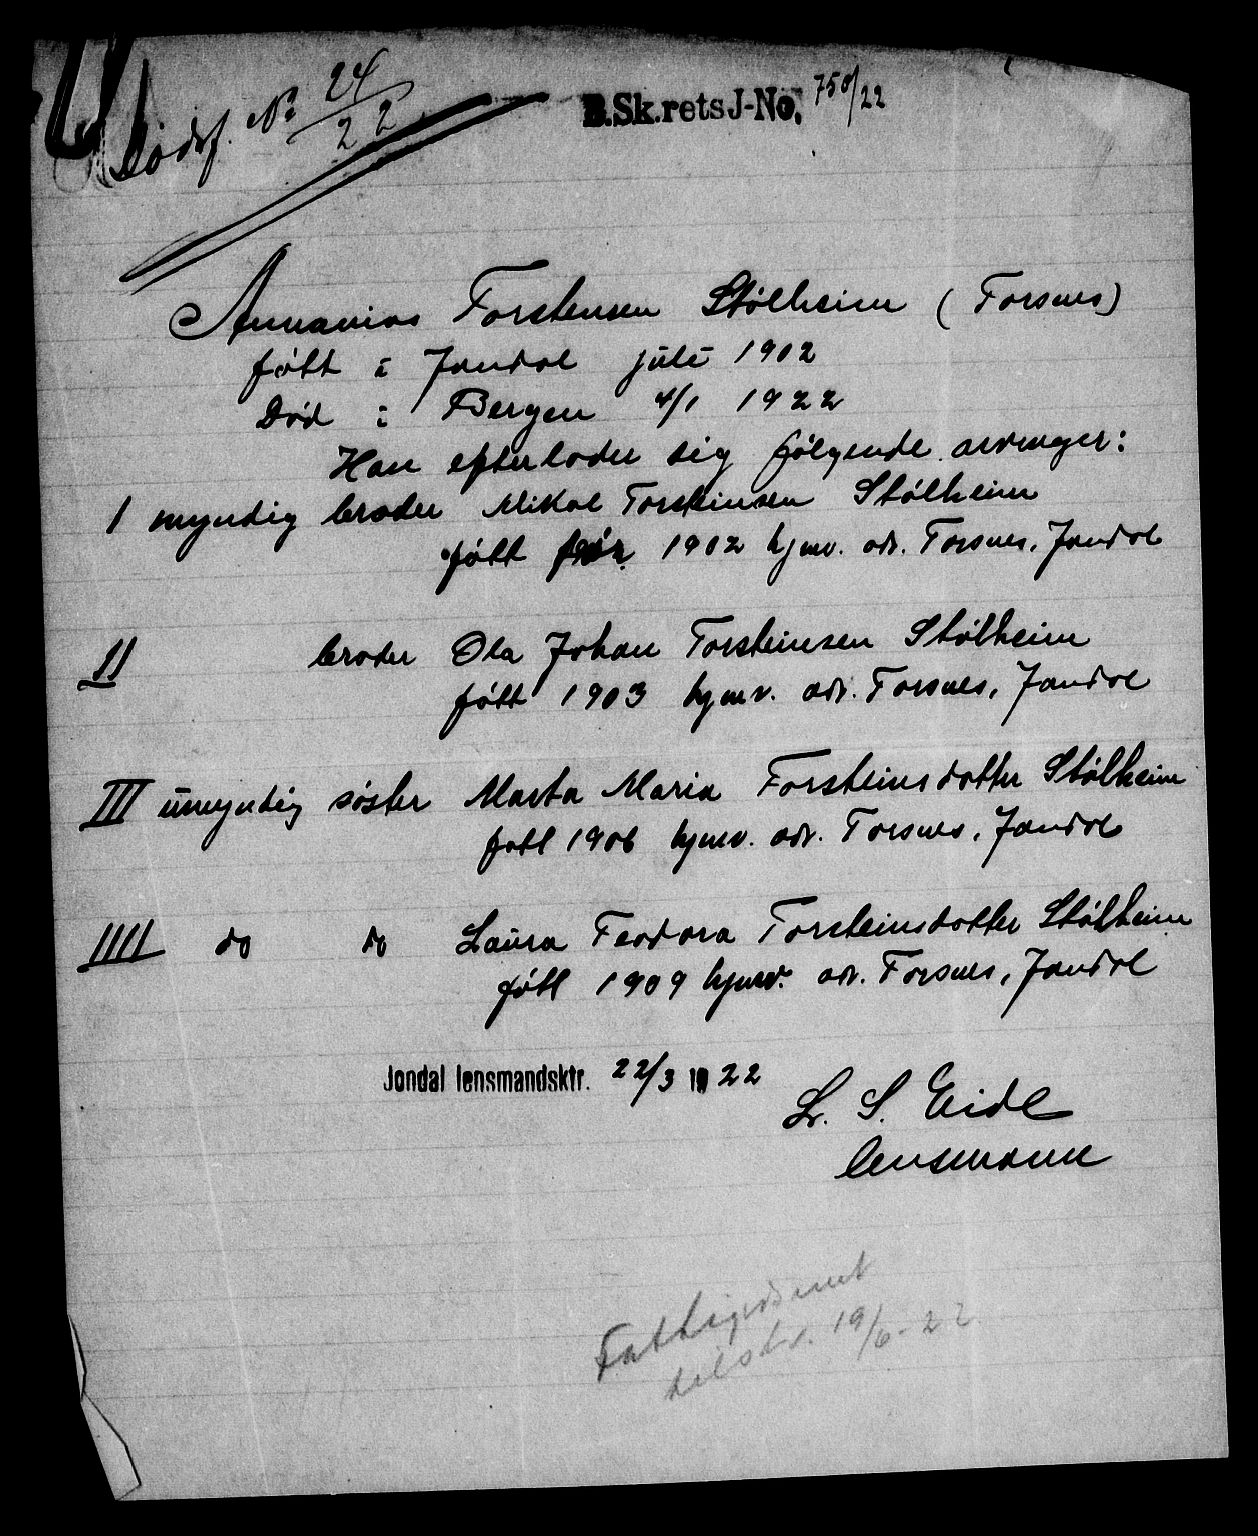 Dødsf. No 24/22
B.Sk.rets J-No. 758/22
Annanias Torstensen Stølheim (Torsnes)
født i Jondal juli 1902
Død i Bergen 4/1 1922
Han efterlader sig følgende arvinger:
I myndig broder Mikal Torsteinsen Stølheim
født 1902 hjmv. adr. Torsnes, Jondal
II broder Ola Johan Torsteinsen Stølheim
født 1903 hjmv. adr. Torsnes, Jondal
III umyndig søster Marta Maria Torsteinsdotter Stølheim
født 1906 hjmv. adr. Torsnes, Jondal
IIII do do Laura Feodora Torsteinsdotter Stølheim
født 1909 hjmv. adr. Torsnes, Jondal
Jondal lensmandsktr. 22/3 1922
L. S. Eide
lensmann
19/6-22